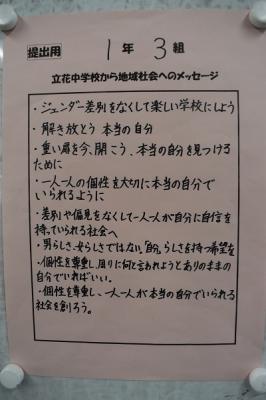 提出用 1年 3組
立花中学校から地域社会へのメッセージ
・ジェンダー差別をなくして楽しい学校にしよう
・解き放とう 本当の自分
・重い扉を今、開こう、本当の自分を見つける
ために
・一人一人の個性を大切に本当の自分で
いられるように
・差別や偏見をなくして一人一人が自分に自信を
持っていられる社会へ
・男らしさ、女らしさではない「自分」らしさを持つ希望を
・個性を尊重し、周りに何と言われようとありのままの
自分でいればいい。
・個性を尊重し、一人一人が本当の自分でいられる
社会を創ろう。